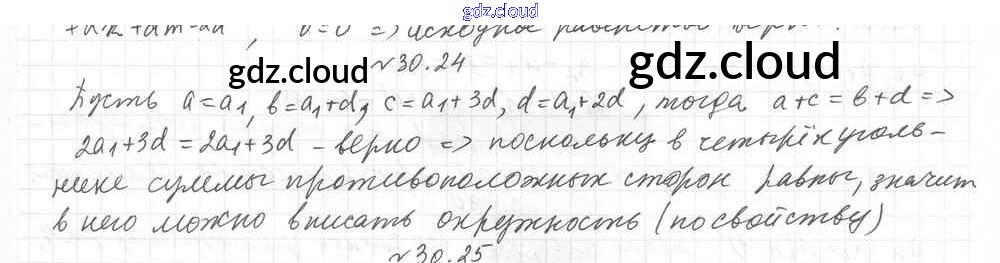 gdz.cloud
+a1k + a1m - 2a
, 0=0 => исходное равенство
gdz.cloud
gdz.cloud
№30.24
Пусть a=a₁, b=a₁+d, c=a₁+3d, d=a₁+2d, тогда a+c=b+d =>
2a₁+3d = 2a₁+3d - верно => поскольку в четырёхуголь-
нике суммы противоположных сторон равны, значит
в него можно вписать окружность (по свойству)
№30.25